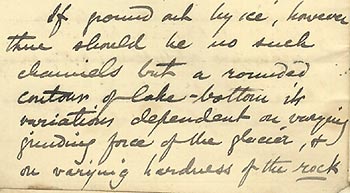 If ground out by ice, however
there should be no such
channels but a rounded
contour of lake-bottom its
variations dependent on varying
grinding force of the glacier, &
on varying hardness of the rock